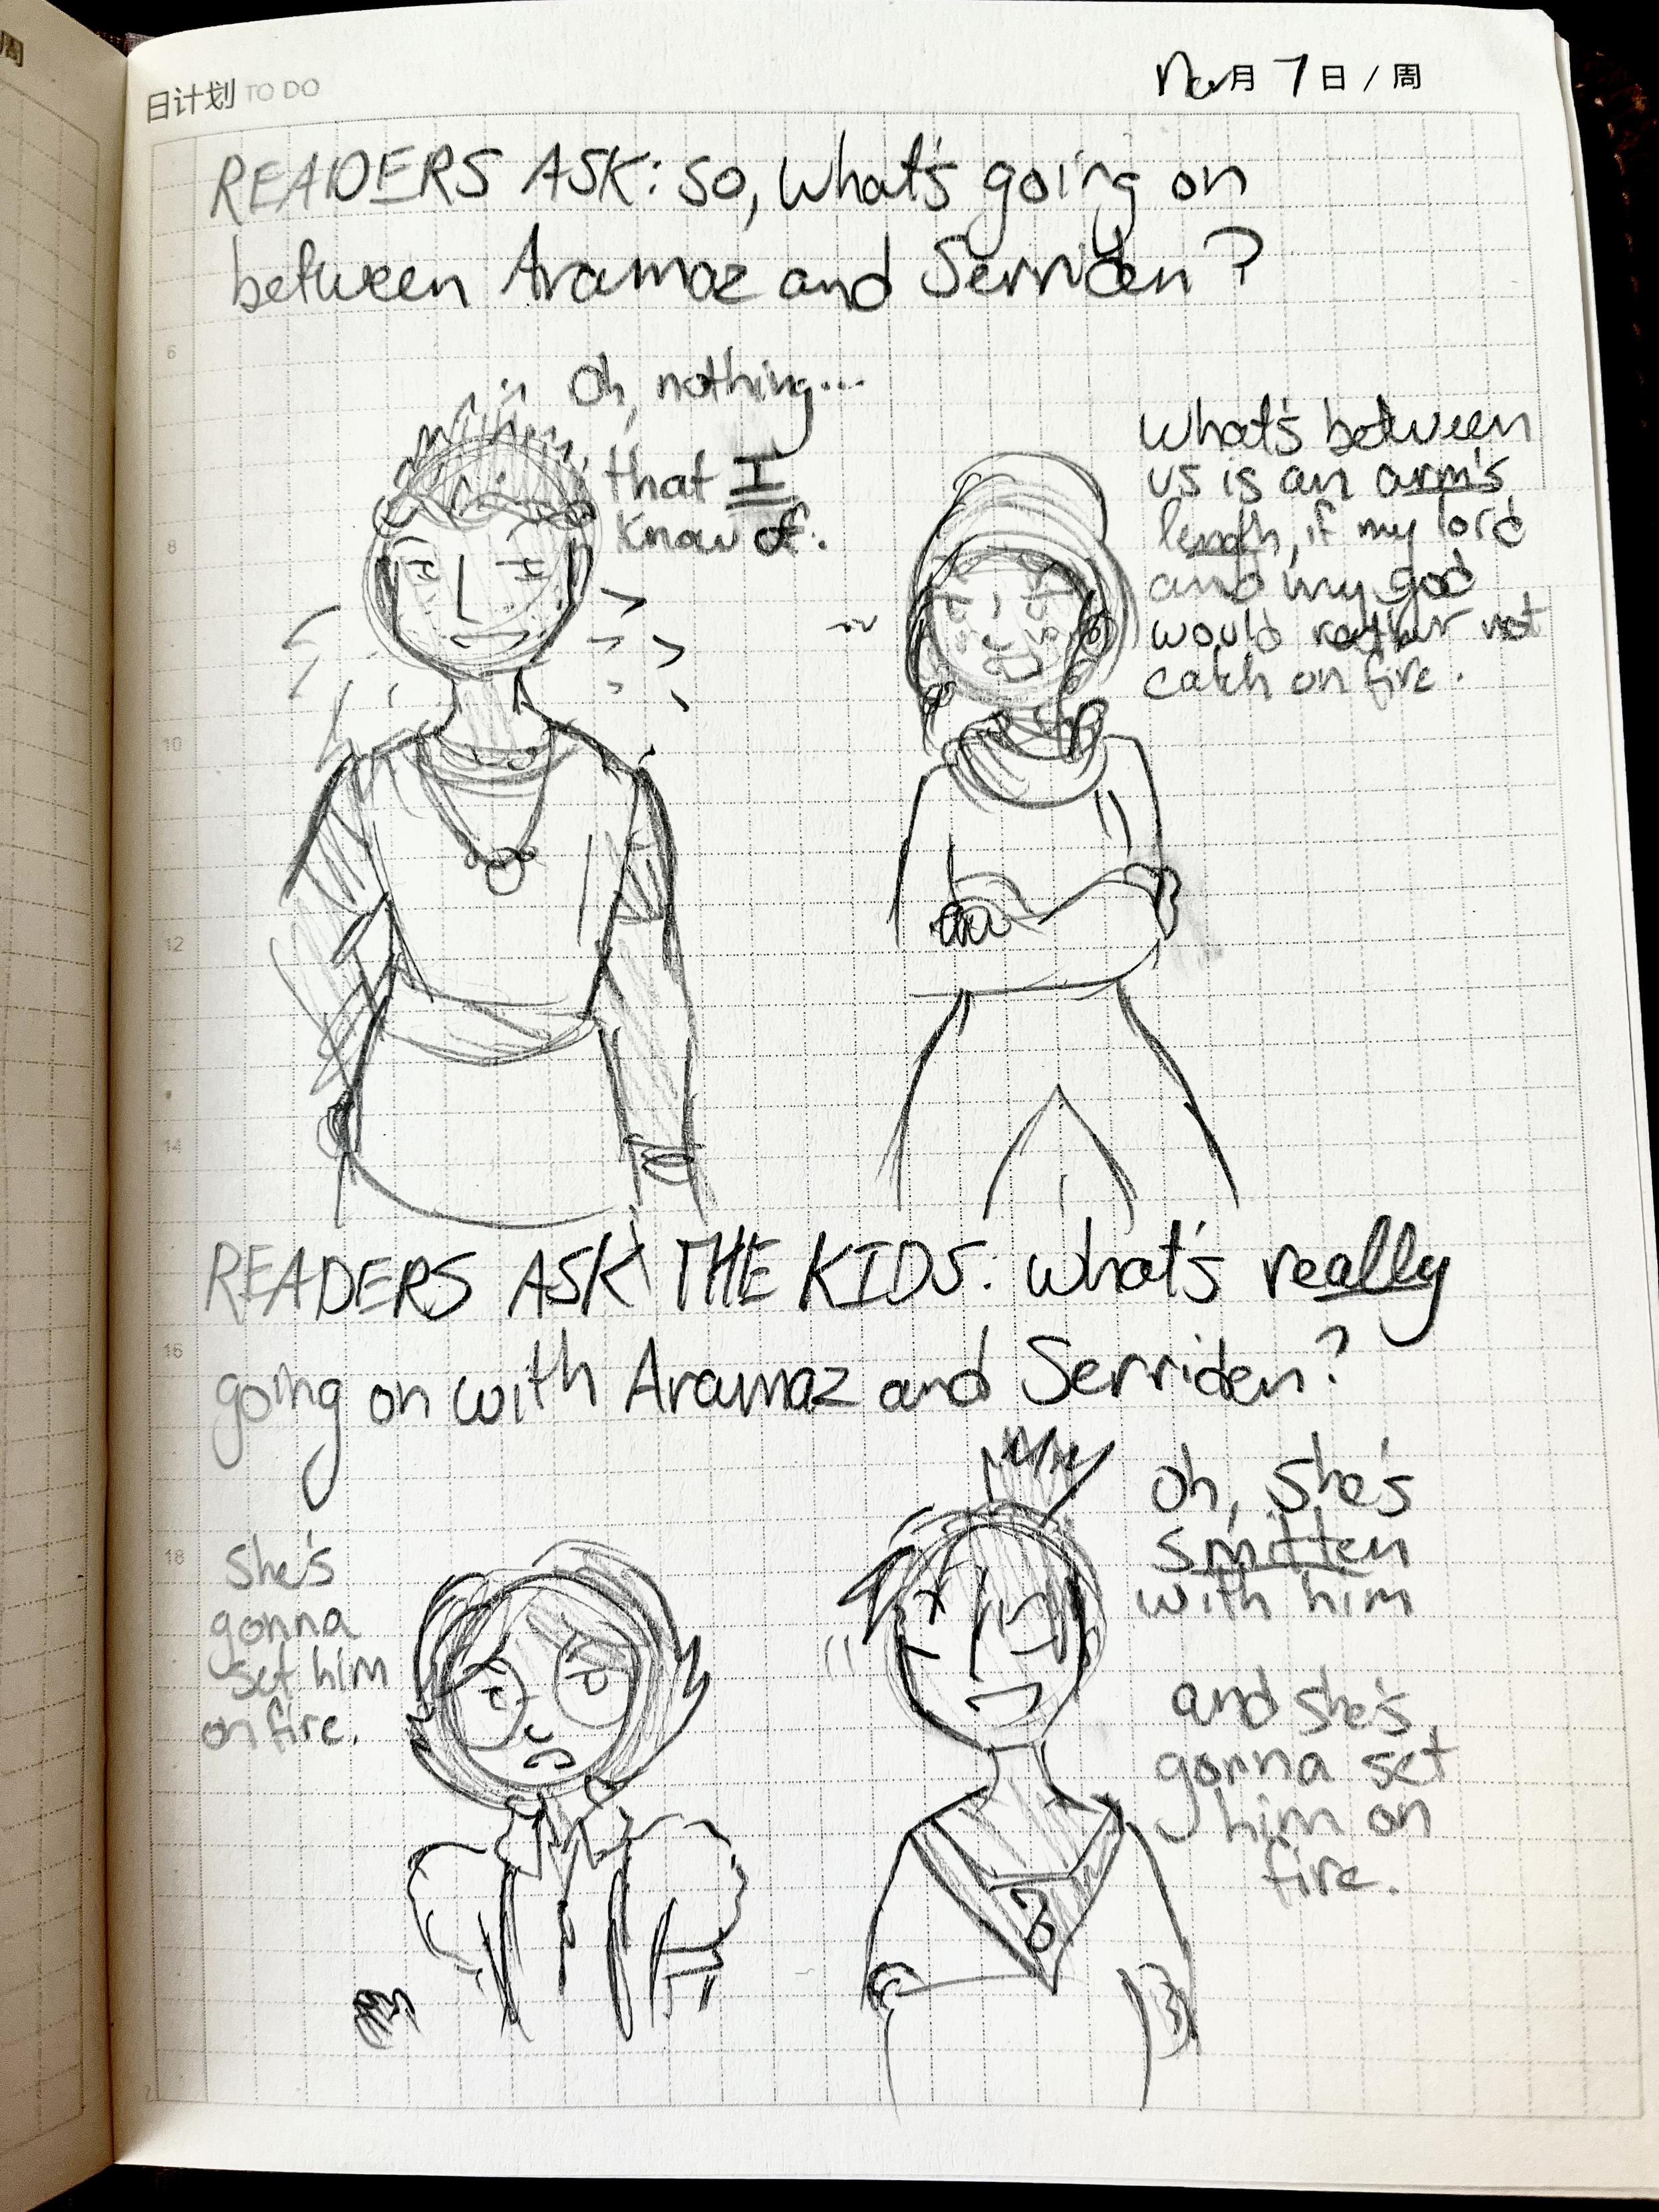 日计划 TO DO
Mar月 7日/周
READERS ASK: so, what's going on
between Aramaz and Serriden?
6
8
10
12
14
16
18
Oh, nothing...
that I
know of.
What's between
us is an arm's
length, if my lord
and my god
would rather not
catch on fire.
READERS ASK THE KIDS: what's really
going on with Aramaz and Serriden?
She's
gonna
set him
on fire.
oh, she's
smitten
with him
and she's
gonna set
him on
fire.